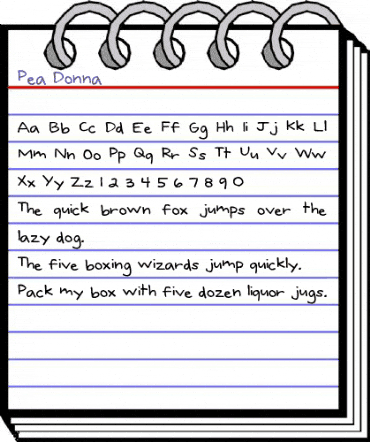 Pea Donna
Aa Bb Cc Dd Ee Ff Gg Hh Ii Jj Kk Ll
Mm Nn Oo Pp Qq Rr Ss Tt Uu Vv Ww
Xx Yy Zz 1 2 3 4 5 6 7 8 9 0
The quick brown fox jumps over the
lazy dog.
The five boxing wizards jump quickly.
Pack my box with five dozen liquor jugs.